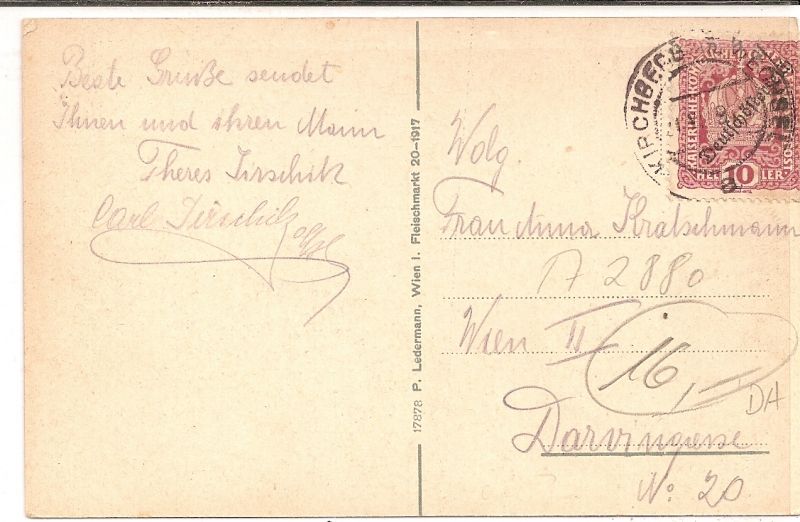 Beste Grüße sendet
Ihnen und ihren Mann
Theres Tirschik
Carl Tirschik
17878 P. Ledermann, Wien I. Fleischmarkt 20-1917
KIRCHBERG
KAISERLICHE KÖN
Deutschösterreich
HELLER
10
Wolg.
Frau Anna Kratschmann
A 2880
Wien II
16,—
DA
Darvingasse
No: 20